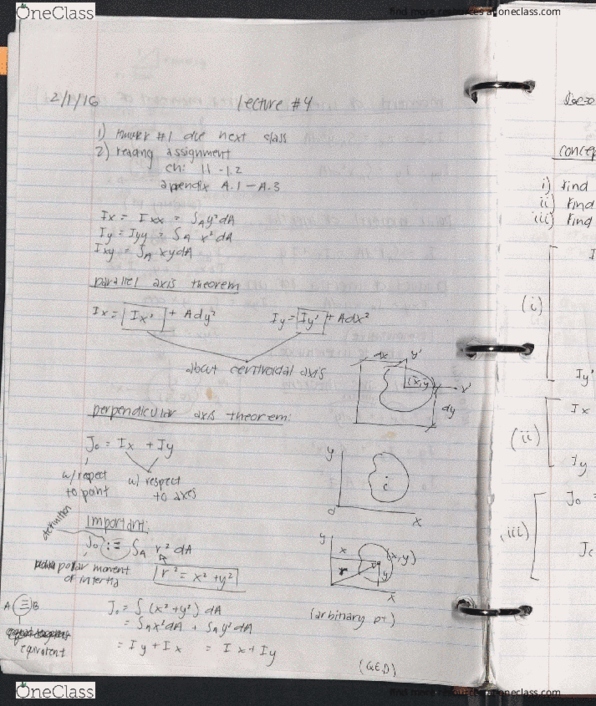 OneClass
find more resources at oneclass.com
2/1/16 Lecture #4
1) HWRK #1 due next class
2) reading assignment
ch: 1.1 - 1.2
apendix A.1 - A.3
Ix = Ixx = ∫A y²dA
Iy = Iyy = ∫A x²dA
Ixy = ∫A xydA
parallel axis theorem
Ix = Ix' + Ady² Iy = Iy' + Adx²
about centroidal axis
dx y'
(x,y) x'
dy
perpendicular axis theorem:
Jo = Ix + Iy
w/ respect to point
w/ respect to axes
y
c
o x
Important:
definition
Jo := ∫A r²dA
polar moment of inertia
r² = x² + y²
y x (x,y)
r y
x
(arbinary pt)
A ≡ B
equivalent
Jo = ∫ (x² + y²) dA
= ∫A x²dA + ∫A y²dA
= Iy + Ix = Ix + Iy
(QED)
concep
i) Find
ii) Find
iii) Find
(i)
Iy'
(ii)
Ix
Iy
(iii)
Jo =
Jc
OneClass
find more resources at oneclass.com